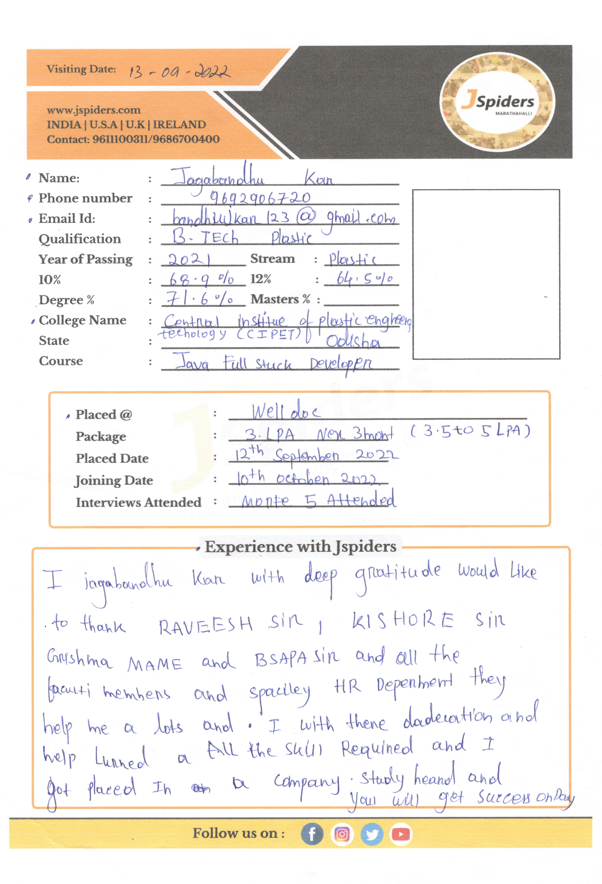 Visiting Date: 13-09-2022
JSpiders
MARATHAHALLI
www.jspiders.com
INDIA | U.S.A | U.K | IRELAND
Contact: 9611100311/9686700400
Name: Jagabandhu Kar
Phone number : 9692906720
Email Id: : bandhulkar123@gmail.com
Qualification : B-TEch Plastic
Year of Passing : 2021 Stream : Plastic
10% : 68.9% 12% : 64.5%
Degree % : 71.6% Masters % :
College Name : Central institue of plastic engneering
techology (CIPET)
State : Odisha
Course : Java Full Stack Developer
Placed @ : Well doc
Package : 3.LPA Nex 3mont (3.5 to 5 LPA)
Placed Date : 12th September 2022
Joining Date : 10th october 2022
Interviews Attended : Monte 5 Attended
Experience with Jspiders
I jagabandhu Kar with deep gratitude would Like
to thank RAVEESH sir, KISHORE sir
Grishma MAME and BSAPA sir and all the
faculti members and spaciley HR Deperment they
help me a lots and. I with there dadecation and
help Lurned a All the Skill Required and I
got placed In a company. Study heard and
You will get Success onDay
Follow us on :